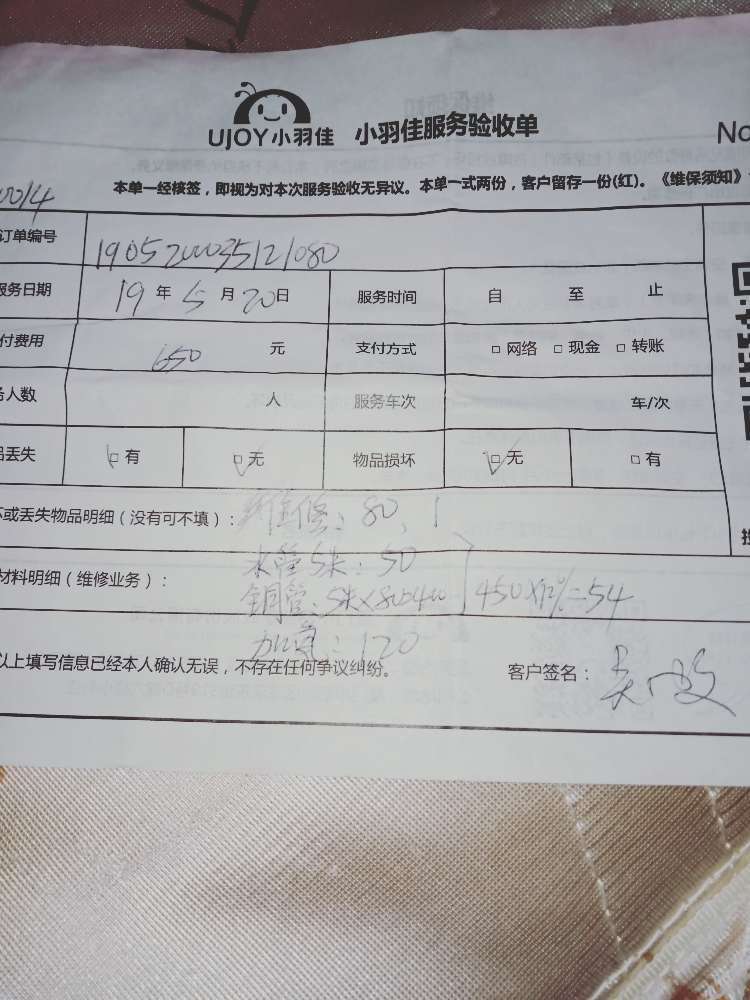 UJOY小羽佳 小羽佳服务验收单 No
0014
本单一经核签，即视为对本次服务验收无异议。本单一式两份，客户留存一份(红)。《维保须知》
订单编号 1905200035121080
服务日期 19 年 5 月 20 日 服务时间 自 至 止
付费用 650 元 支付方式 □ 网络 □ 现金 □ 转账
务人数 人 服务车次 车/次
品丢失 □ 有 □ 无 物品损坏 □ 无 □ 有
坏或丢失物品明细（没有可不填）： 维修：80，1
水管5米：50
材料明细（维修业务）： 铜管：5米×80=400 450×12%=54
加氟：120
以上填写信息已经本人确认无误，不存在任何争议纠纷。 客户签名：